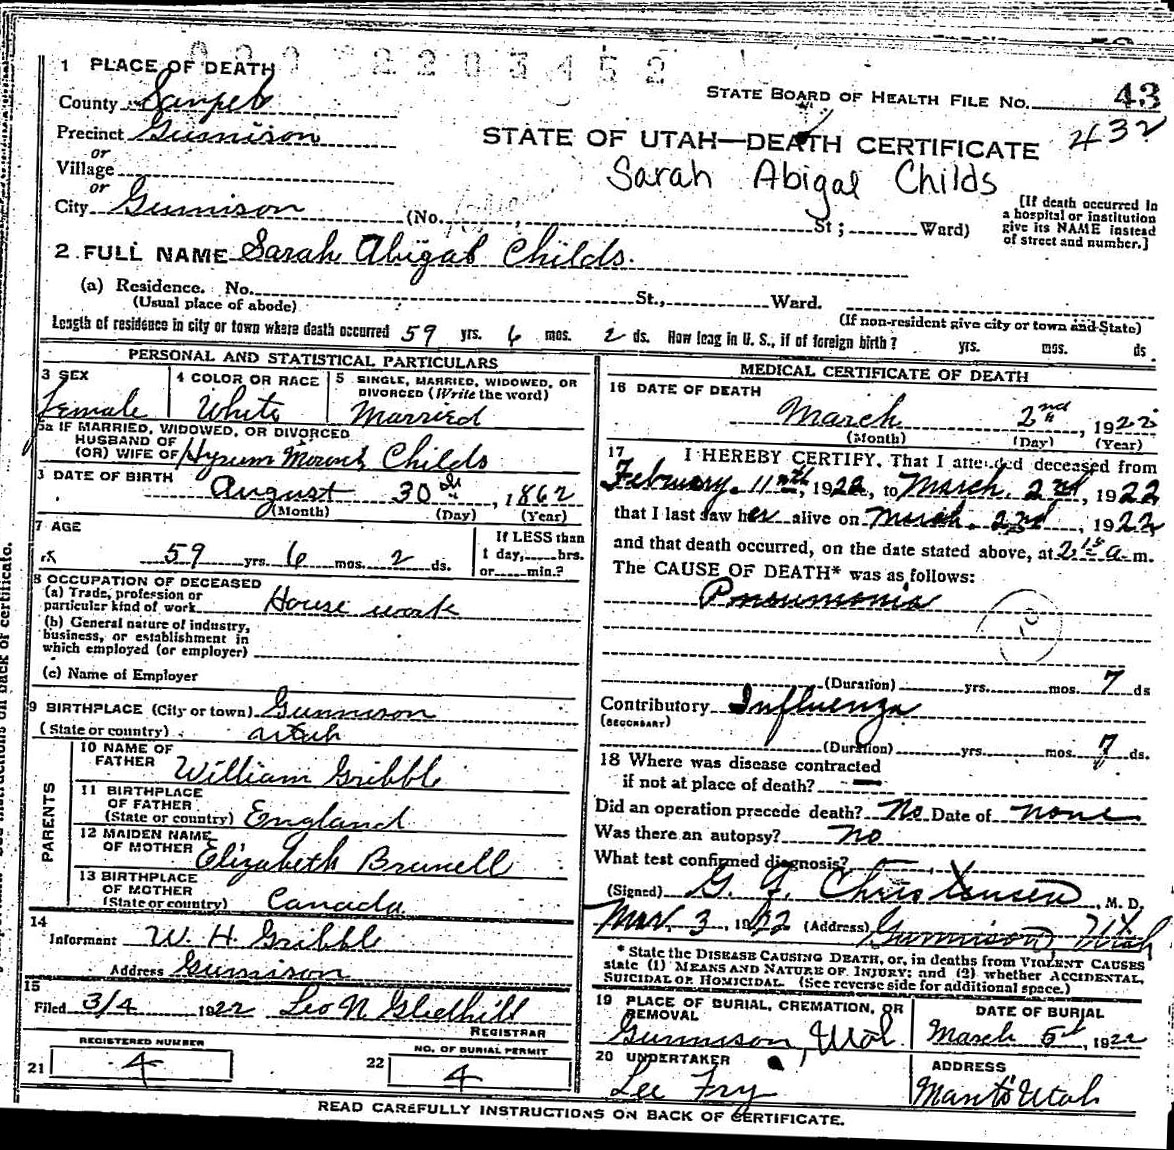 1 PLACE OF DEATH
County Sanpete
Precinct Gunnison
or
Village
or
City Gunnison (No. St; Ward)
STATE BOARD OF HEALTH FILE NO. 43
432
STATE OF UTAH—DEATH CERTIFICATE
Sarah Abigal Childs
[If death occurred in
a hospital or institution
give its NAME instead
of street and number.]
2 FULL NAME Sarah Abigal Childs.
(a) Residence. No. St., Ward.
(Usual place of abode) (If non-resident give city or town and State)
Length of residence in city or town where death occurred 59 yrs. 6 mos. 2 ds. How long in U. S., if of foreign birth? yrs. mos. ds.
PERSONAL AND STATISTICAL PARTICULARS
3 SEX
Female
4 COLOR OR RACE
White
5 SINGLE, MARRIED, WIDOWED, OR
DIVORCED (Write the word)
Married
5a IF MARRIED, WIDOWED, OR DIVORCED
HUSBAND OF
(OR) WIFE OF Hyrum Childs
DATE OF BIRTH August 30, 1862
(Month) (Day) (Year)
7 AGE
59 yrs. 6 mos. 2 ds.
If LESS than
1 day, hrs.
or min.?
8 OCCUPATION OF DECEASED
(a) Trade, profession or
particular kind of work House work
(b) General nature of industry,
business, or establishment in
which employed (or employer)
(c) Name of Employer
9 BIRTHPLACE (City or town) Gunnison
(State or country) Utah
PARENTS
10 NAME OF
FATHER William Gribble
11 BIRTHPLACE
OF FATHER
(State or country) England
12 MAIDEN NAME
OF MOTHER Elizabeth Brunell
13 BIRTHPLACE
OF MOTHER
(State or country) Canada
14
Informant W. H. Gribble
Address Gunnison
15
Filed 3/4 1922 Leo N Gledhill
REGISTRAR
21 REGISTERED NUMBER
4
22 NO. OF BURIAL PERMIT
4
MEDICAL CERTIFICATE OF DEATH
16 DATE OF DEATH
March 2nd, 1922
(Month) (Day) (Year)
17 I HEREBY CERTIFY, That I attended deceased from
February 11th, 1922, to March 2nd, 1922
that I last saw her alive on March 2nd, 1922,
and that death occurred, on the date stated above, at 2 15 a m.
The CAUSE OF DEATH* was as follows:
Pneumonia
(Duration) yrs. mos. 7 ds
Contributory Influenza
(SECONDARY)
(Duration) yrs. mos. 7 ds.
18 Where was disease contracted
if not at place of death? —
Did an operation precede death? No Date of none
Was there an autopsy? no
What test confirmed diagnosis? —
(Signed) Christensen, M. D.
Mar. 3 1922 (Address) Gunnison, Utah
* State the DISEASE CAUSING DEATH, or, in deaths from VIOLENT CAUSES
state (1) MEANS AND NATURE OF INJURY; and (2) whether ACCIDENTAL,
SUICIDAL OR HOMICIDAL. (See reverse side for additional space.)
19 PLACE OF BURIAL, CREMATION, OR
REMOVAL
Gunnison, Utah.
DATE OF BURIAL
March 5th, 1922
20 UNDERTAKER
Lee Fry
ADDRESS
Manti Utah
READ CAREFULLY INSTRUCTIONS ON BACK OF CERTIFICATE.